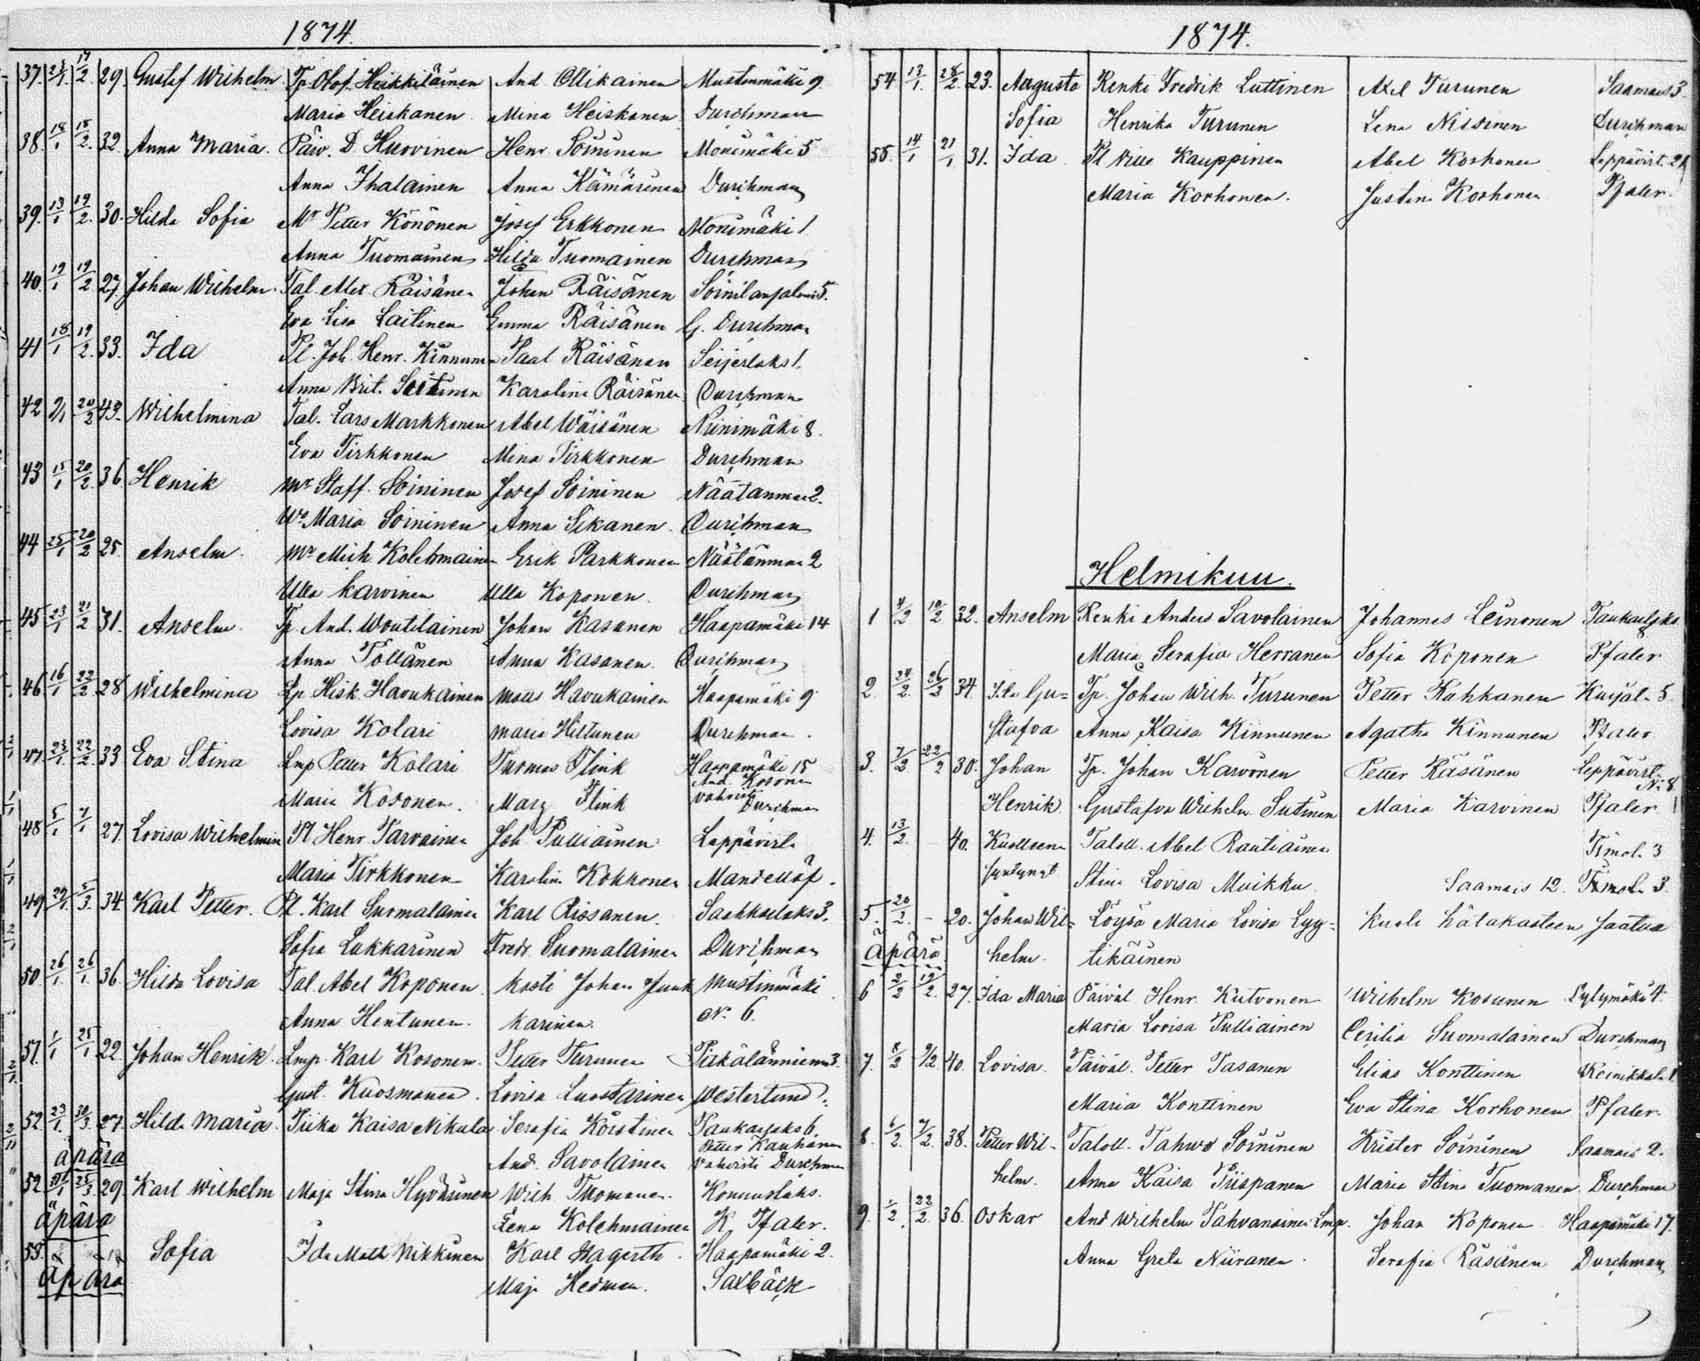 1874.
37. 24/1 17/2. 29. Gustaf Wilhelm Tp. Olof Heikkiläinen And. Ollikainen Mustinmäki 9
Maria Heiskanen Mina Heiskanen Durchman
38. 14/1 18/2. 32. Anna Maria. Päiv. D. Huovinen Henr Soininen Monimäki 5
Anna Ihalainen Anna Kämäräinen Durchman
39. 13/1 19/2. 30. Hilda Sofia Mr Petter Könönen Josef Erkkonen Monimäki 1
Anna Tuomainen Hilda Tuomainen Durchman
40. 19/1 19/2 27 Johan Wilhelm. Tal. Alex Räisänen Johan Räisänen Soinilansalmi 5.
Eva Lisa Laitinen Emma Räisänen G. Durchman
41 18/1 19/2. 33. Ida Pl. Joh. Henr. Kinnunen Paal Räisänen Seijerlaks 1.
Anna Brit. Karolina Räisänen Durchman
42 9/1 20/2 43. Wilhelmina Tal. Lars Markkanen Abel Wäisänen Niinimäki 8.
Eva Tirkkonen Mina Tirkkonen Durchman
43 15/1 20/2. 36. Henrik Mr Staff. Soininen Josef Soininen Näätänmaa 2.
Wo Maria Soininen Anna Sikanen. Durchman
44 25/1 20/2 25. Anselm. Mr Mich Kolehmainen Erik Parkkonen Näätänmaa 2
Ulla Karvinen Ulla Koponen. Durchman
45 23/1 21/2 31. Anselm. Tp. And. Woutilainen Johan Kasanen Haapamäki 14
Anna Pöllänen Anna Kasanen. Durchman
46 16/1 22/2. 28 Wilhelmina Lp Hisk. Havukainen Moses Havukainen Haapamäki 9
Lovisa Kolari Maria Hiltunen Durchman.
47. 23/1 22/2. 33 Eva Stina Lmp Petter Kolari Tuomas Flink Haapamäki 15
And. Kosonen
Maria Kosonen. Marg Flink vahvisti Durchman
48 5/1 7/1 27. Lovisa Wilhelmina Pl Henr Tarvainen Joh Pulliainen Leppävirt.
Maria Tirkkonen Karolina Kokkonen Mandellöf.
49. 29/1. 5/3. 34. Karl Petter. Pl. Karl Suomalainen Karl Rissanen. Saahkarlaks 3.
Sofia Lukkarinen Fredr. Suomalainen Durchman
50. 26/1 26/1. 36. Hilda Lovisa Tal. Abel Koponen. Kosti Johan Junk Mustinmäki
Anna Hentunen. karinen. No. 6.
51. 1/1 25/1 22. Johan Henrik Lmp. Karl Kosonen. Petter Turunen Pirkälänniemi 3.
Gust. Kuosmanen. Lovisa Luostarinen Westerlund.
52 23/1. 30/3. 27. Hilda Maria. Piika Kaisa Nikula Serafia Koistinen Paukarlaks 6.
Petter Kauhanen
äpärä And. Savolainen vahvisti Durchman
52. 25/3. 29. Karl Wilhelm Maja Stina Hyvärinen Wilh Tuomanen. Konnuslaks.
äpärä Lena Kolehmainen K. Pfaler.
53. Sofia Ida Math Nikkinen Karl Hagerth. Haapamäki 2.
äpärä Maja Hedman. Saxbäck
1874.
54 13/1 28/2 23. Augusta Renki Fredrik Luttinen Axel Turunen Saamais 3.
Sofia Henrika Turunen Lena Nissinen Durchman
55. 14/1 21/1 31. Ida Pl Nils Kauppinen Abel Korhonen Leppävirt. 21
Maria Korhonen. Justina Korhonen Pfaler.
Helmikuu.
1 4/2 10/2 32. Anselm Renki Anders Savolainen Johannes Leinonen Paukarlaks
Maria Serafia Herranen Sofia Koponen Pfaler
2. 24/2. 26/3 34. Ida Gu= Tp. Johan Wilh. Turunen Petter Kähkänen Kurjal. 5
stafva Anna Kaisa Kinnunen Agatha Kinnunen Pfaler
3. 7/2 22/2 30. Johan Tp. Johan Karvonen Petter Räsänen Leppävirt. No. 8.
Henrik. Gustafva Wilhelm Sutinen Maria Karvinen Pfaler
4. 13/2. 40. Kuolleena Taloll. Abel Rautiainen Timol. 3
syntynyt Stina Lovisa Muikku. Saamais 12. Timol. 3.
5. 20/2. - 20. Johan Wil= Löysä Maria Lovisa Lyy= Kuoli hätäkasteen saatua
äpärä helm. tikäinen
6 2/2 19/2. 27. Ida Maria Päiväl. Henr. Kiitvonen Wilhelm Kosunen Sylymäki 4.
Maria Lovisa Pulliainen Cecilia Suomalainen Durchman
7. 8/2 9/2 40. Lovisa. Päiväl. Petter Pasanen Elias Konttinen
Maria Konttinen Eva Stina Korhonen Pfaler
8. 6/2. 7/2. 38. Petter Wil- Taloll. Tahwo Soininen Krister Soininen Saamais 2.
helm. Anna Kaisa Piispanen Maria Stina Tuomanen Durchman
9. 1/2. 22/2 36. Oskar And Wilhelm Tahvanainen Lmp. Johan Koponen Haapamäki 17.
Anna Greta Niiranen. Serafia Räsänen Durchman